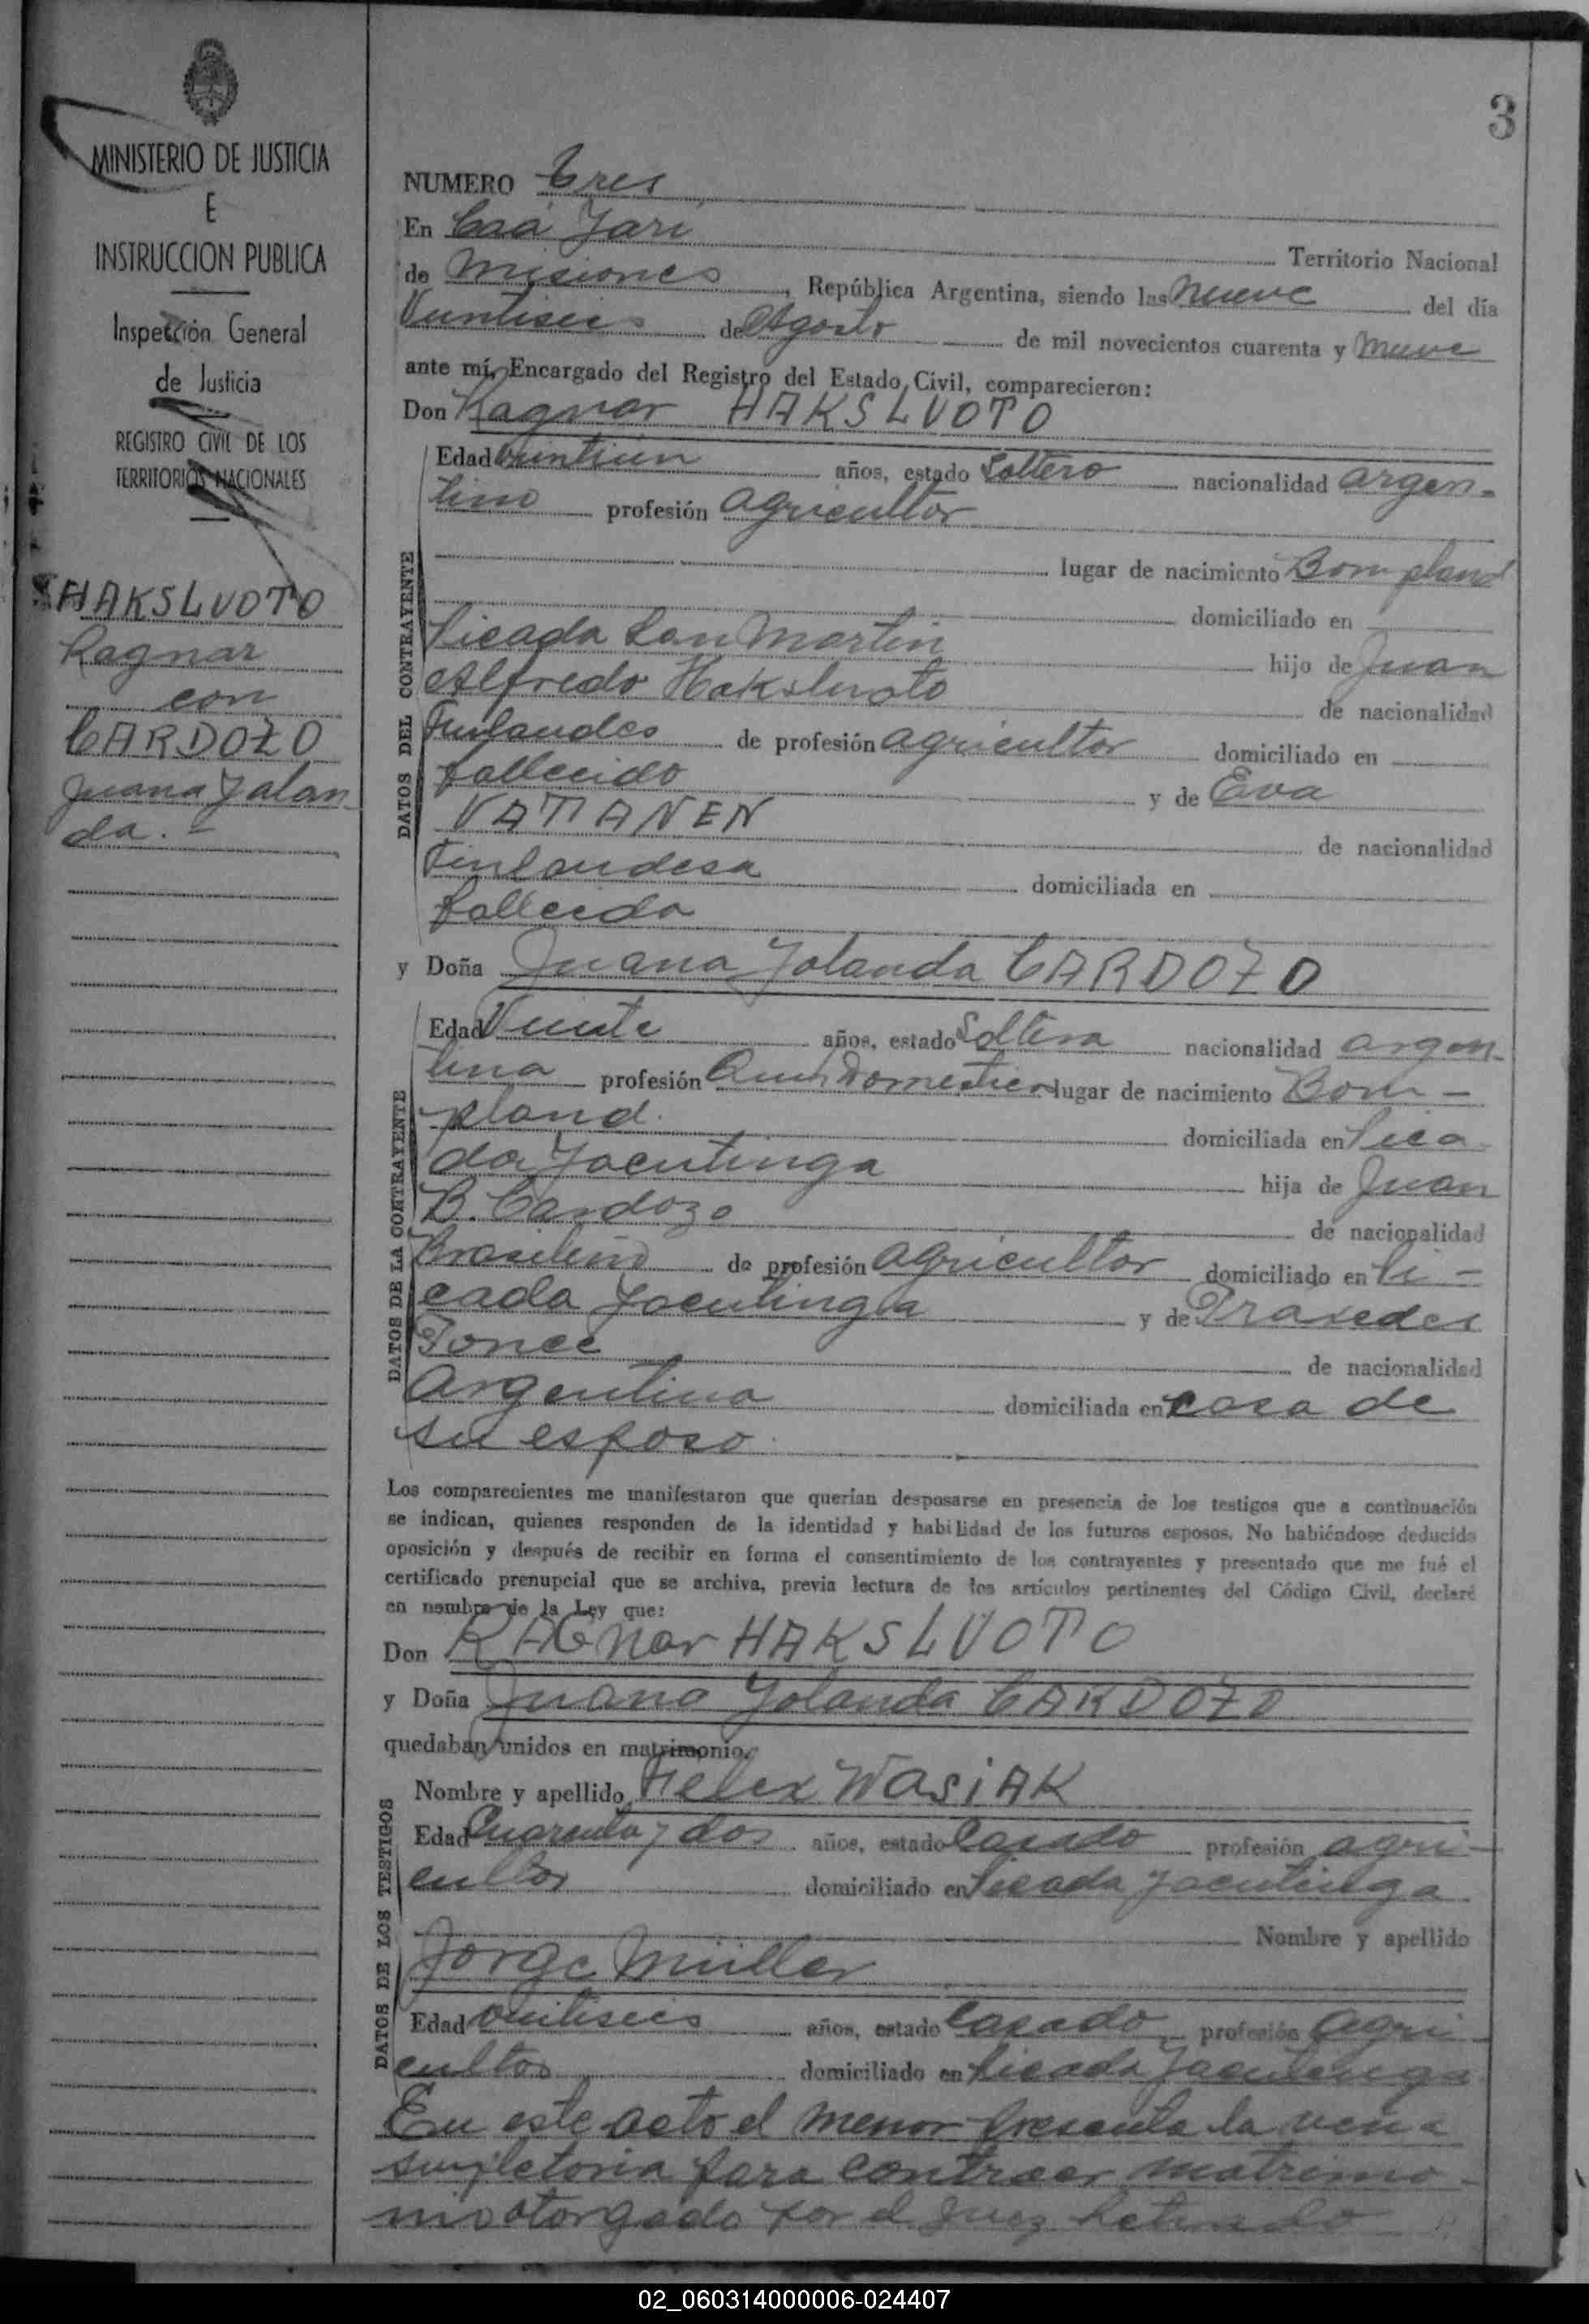 3
MINISTERIO DE JUSTICIA
E
INSTRUCCION PUBLICA
Inspección General
de Justicia
REGISTRO CIVIL DE LOS
TERRITORIOS NACIONALES
HAKSLUOTO
Ragnar
con
CARDOZO
Juana Yolan
da.-
NUMERO Tres
En Caá Yari
Territorio Nacional
de Misiones, República Argentina, siendo las nueve del día
Veintiseis de Agosto de mil novecientos cuarenta y nueve
ante mí, Encargado del Registro del Estado Civil, comparecieron:
Don Ragnar HAKSLUOTO
DATOS DEL CONTRAYENTE
Edad veintiún años, estado Soltero nacionalidad argen-
tino profesión agricultor
lugar de nacimiento Bompland
domiciliado en
Picada San Martin hijo de Juan
Alfredo Haksluoto de nacionalidad
Finlandes de profesión agricultor domiciliado en
fallecido y de Eva
VATTANEN de nacionalidad
Finlandesa domiciliada en
fallecida
y Doña Juana Yolanda CARDOZO
DATOS DE LA CONTRAYENTE
Edad Veinte años, estado Soltera nacionalidad argen-
tina profesión Domestico lugar de nacimiento Bom-
pland. domiciliada en Pica
da Yacutinga hija de Juan
B. Cardozo de nacionalidad
Brasileño de profesión agricultor domiciliado en Pi-
cada Yacutinga y de Praxedes
Ponce de nacionalidad
Argentina domiciliada en casa de
su esposo
Los comparecientes me manifestaron que querían desposarse en presencia de los testigos que a continuación
se indican, quienes responden de la identidad y habilidad de los futuros esposos. No habiéndose deducido
oposición y después de recibir en forma el consentimiento de los contrayentes y presentado que me fué el
certificado prenupcial que se archiva, previa lectura de los artículos pertinentes del Código Civil, declaré
en nombre de la Ley que:
Don RAGNar HAKSLUOTO
y Doña Juana Yolanda CARDOZO
quedaban unidos en matrimonio.
DATOS DE LOS TESTIGOS
Nombre y apellido Felix WASiAK
Edad Cuarenta y dos años, estado Casado profesión agri-
cultor domiciliado en Picada Yacutinga
Nombre y apellido
Jorge Müller
Edad veitiseis años, estado Casado profesión Agri-
cultor domiciliado en Picada Yacutinga
En este acto el menor presenta la venia
supletoria para contraer matrimo-
nio otorgado por el Juez Letrado
02_060314000006-024407